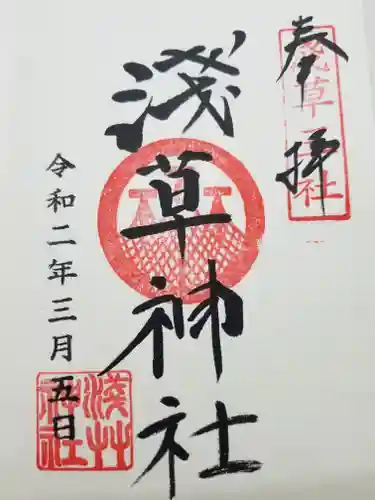 奉拝
浅草三社
淺草神社
令和二年三月五日
淺草神社